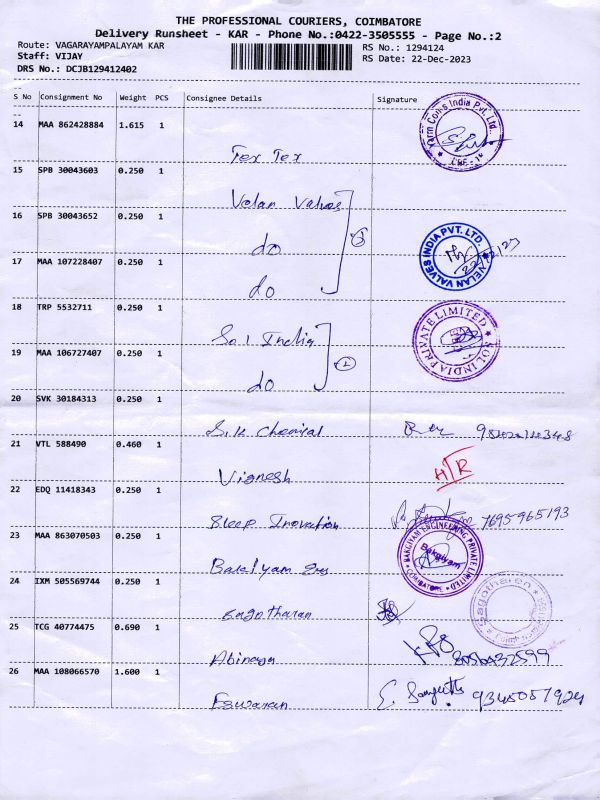 THE PROFESSIONAL COURIERS, COIMBATORE
Delivery Runsheet - KAR - Phone No.:0422-3505555 - Page No.:2
Route: VAGARAYAMPALAYAM KAR
RS No.: 1294124
Staff: VIJAY
RS Date: 22-Dec-2023
DRS No.: DCJB129412402
S No Consignment No Weight PCS Consignee Details Signature
14 MAA 862428884 1.615 1
Tex Tex
15 SPB 30043603 0.250 1
Velan Valves
16 SPB 30043652 0.250 1
do
VELAN VALVES INDIA PVT. LTD.
17 MAA 107228407 0.250 1
do
18 TRP 5532711 0.250 1
Sol India
SOL INDIA PRIVATE LIMITED
19 MAA 106727407 0.250 1
do
20 SVK 30184313 0.250 1
S.K Chemical
21 VTL 588490 0.460 1
Vignesh
HTR
22 EDQ 11418343 0.250 1
Sleep Inovation 7695965193
23 MAA 863070503 0.250 1
BAKGIYAM ENGINEERING PRIVATE LIMITED
Bakgiyam
COIMBATORE
Bakiyam
24 IXM 505569744 0.250 1
25 TCG 40774475 0.690 1
Abinaya
26 MAA 108066570 1.600 1
Eswaran